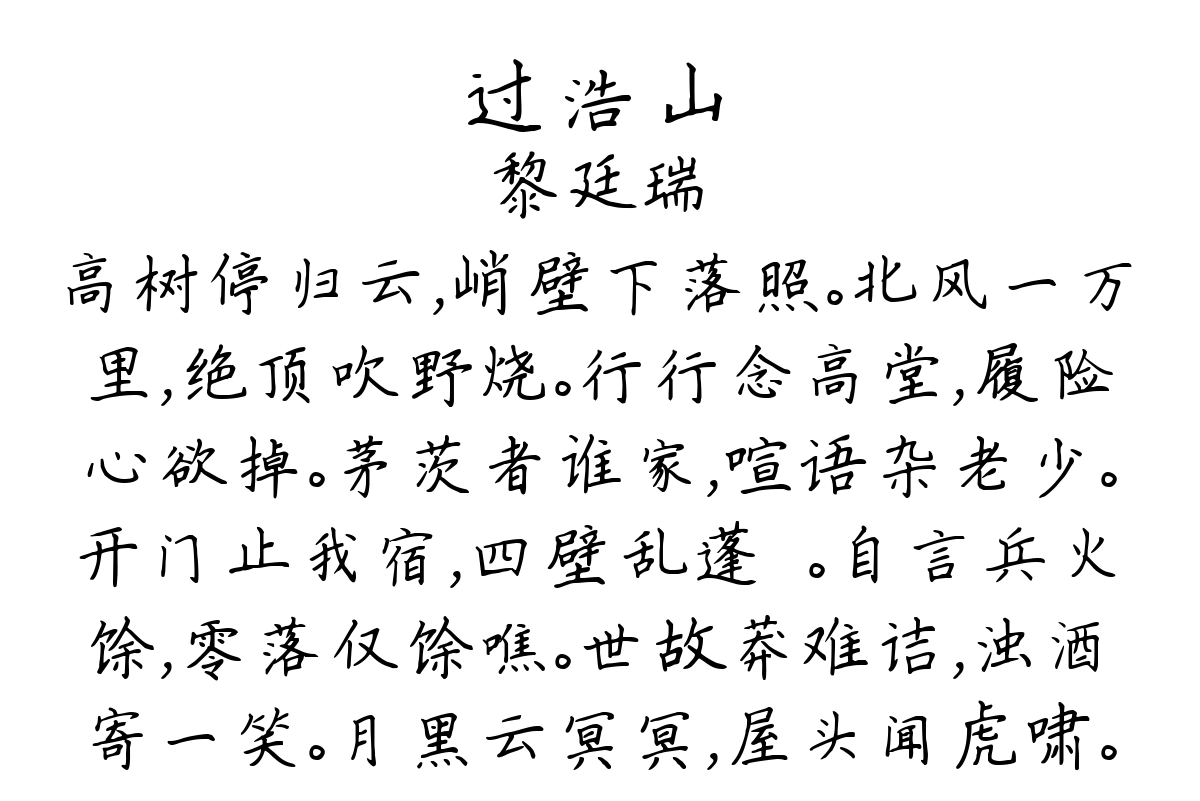 过浩山
黎廷瑞
高树停归云,峭壁下落照。北风一万
里,绝顶吹野烧。行行念高堂,履险
心欲掉。茅茨者谁家,喧语杂老少。
开门止我宿,四壁乱蓬 。自言兵火
馀,零落仅馀噍。世故莽难诘,浊酒
寄一笑。月黑云冥冥,屋头闻虎啸。